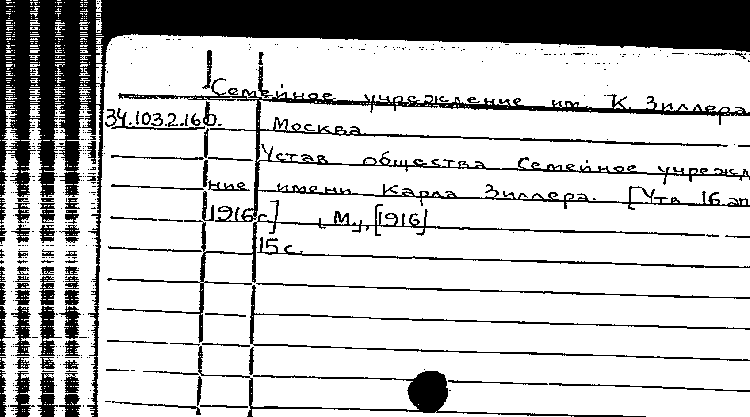 Семейное учреждение им. К. Зиллера
34.103.2.160. Москва.
Устав общества Семейное учрежд
ние имени Карла Зиллера. [Утв. 16 ап
1916 г.] [М.], [1916]
15 с.